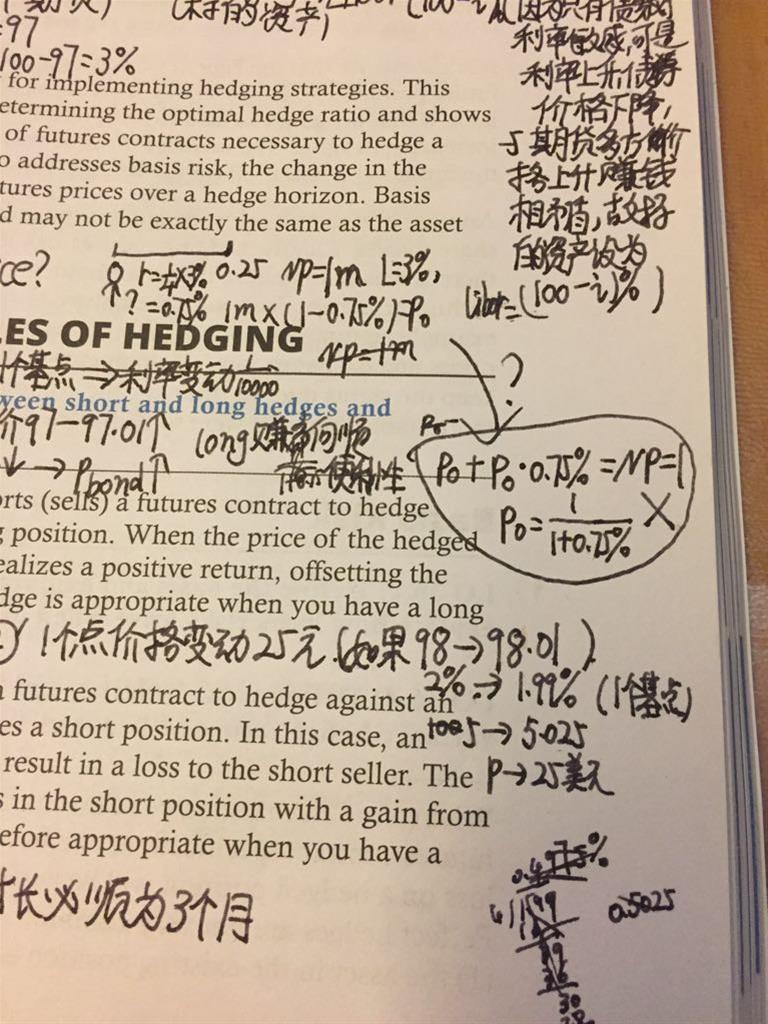 (标的资产)
=97
100-97=3%
for implementing hedging strategies. This
etermining the optimal hedge ratio and shows
of futures contracts necessary to hedge a
o addresses basis risk, the change in the
tures prices over a hedge horizon. Basis
d may not be exactly the same as the asset
利率敏感,可是
利率上升债券
价格下降,
与期货多方价
格上升赚钱
相矛盾,故标
的资产设为
Libor=(100-i)%)
ce?
r=¼×3% 0.25 NP=1m L=3%,
?=0.75% 1m×(1-0.75%)=P₀
LES OF HEDGING
NP=1m
1个基点→利率变动1/10000
?
ween short and long hedges and
价97-97.01↑ long赚
↓→Pbond↑ 便利性
P₀+P₀·0.75%=NP=1
P₀=1/(1+0.75%) ×
orts (sells) a futures contract to hedge
g position. When the price of the hedged
ealizes a positive return, offsetting the
dge is appropriate when you have a long
1个点价格变动25元(如果98→98.01)
a futures contract to hedge against an
2%→1.99% (1个基点)
es a short position. In this case, an
5→5.025
result in a loss to the short seller. The
P→25美元
s in the short position with a gain from
efore appropriate when you have a
长必须为3个月
0.5025